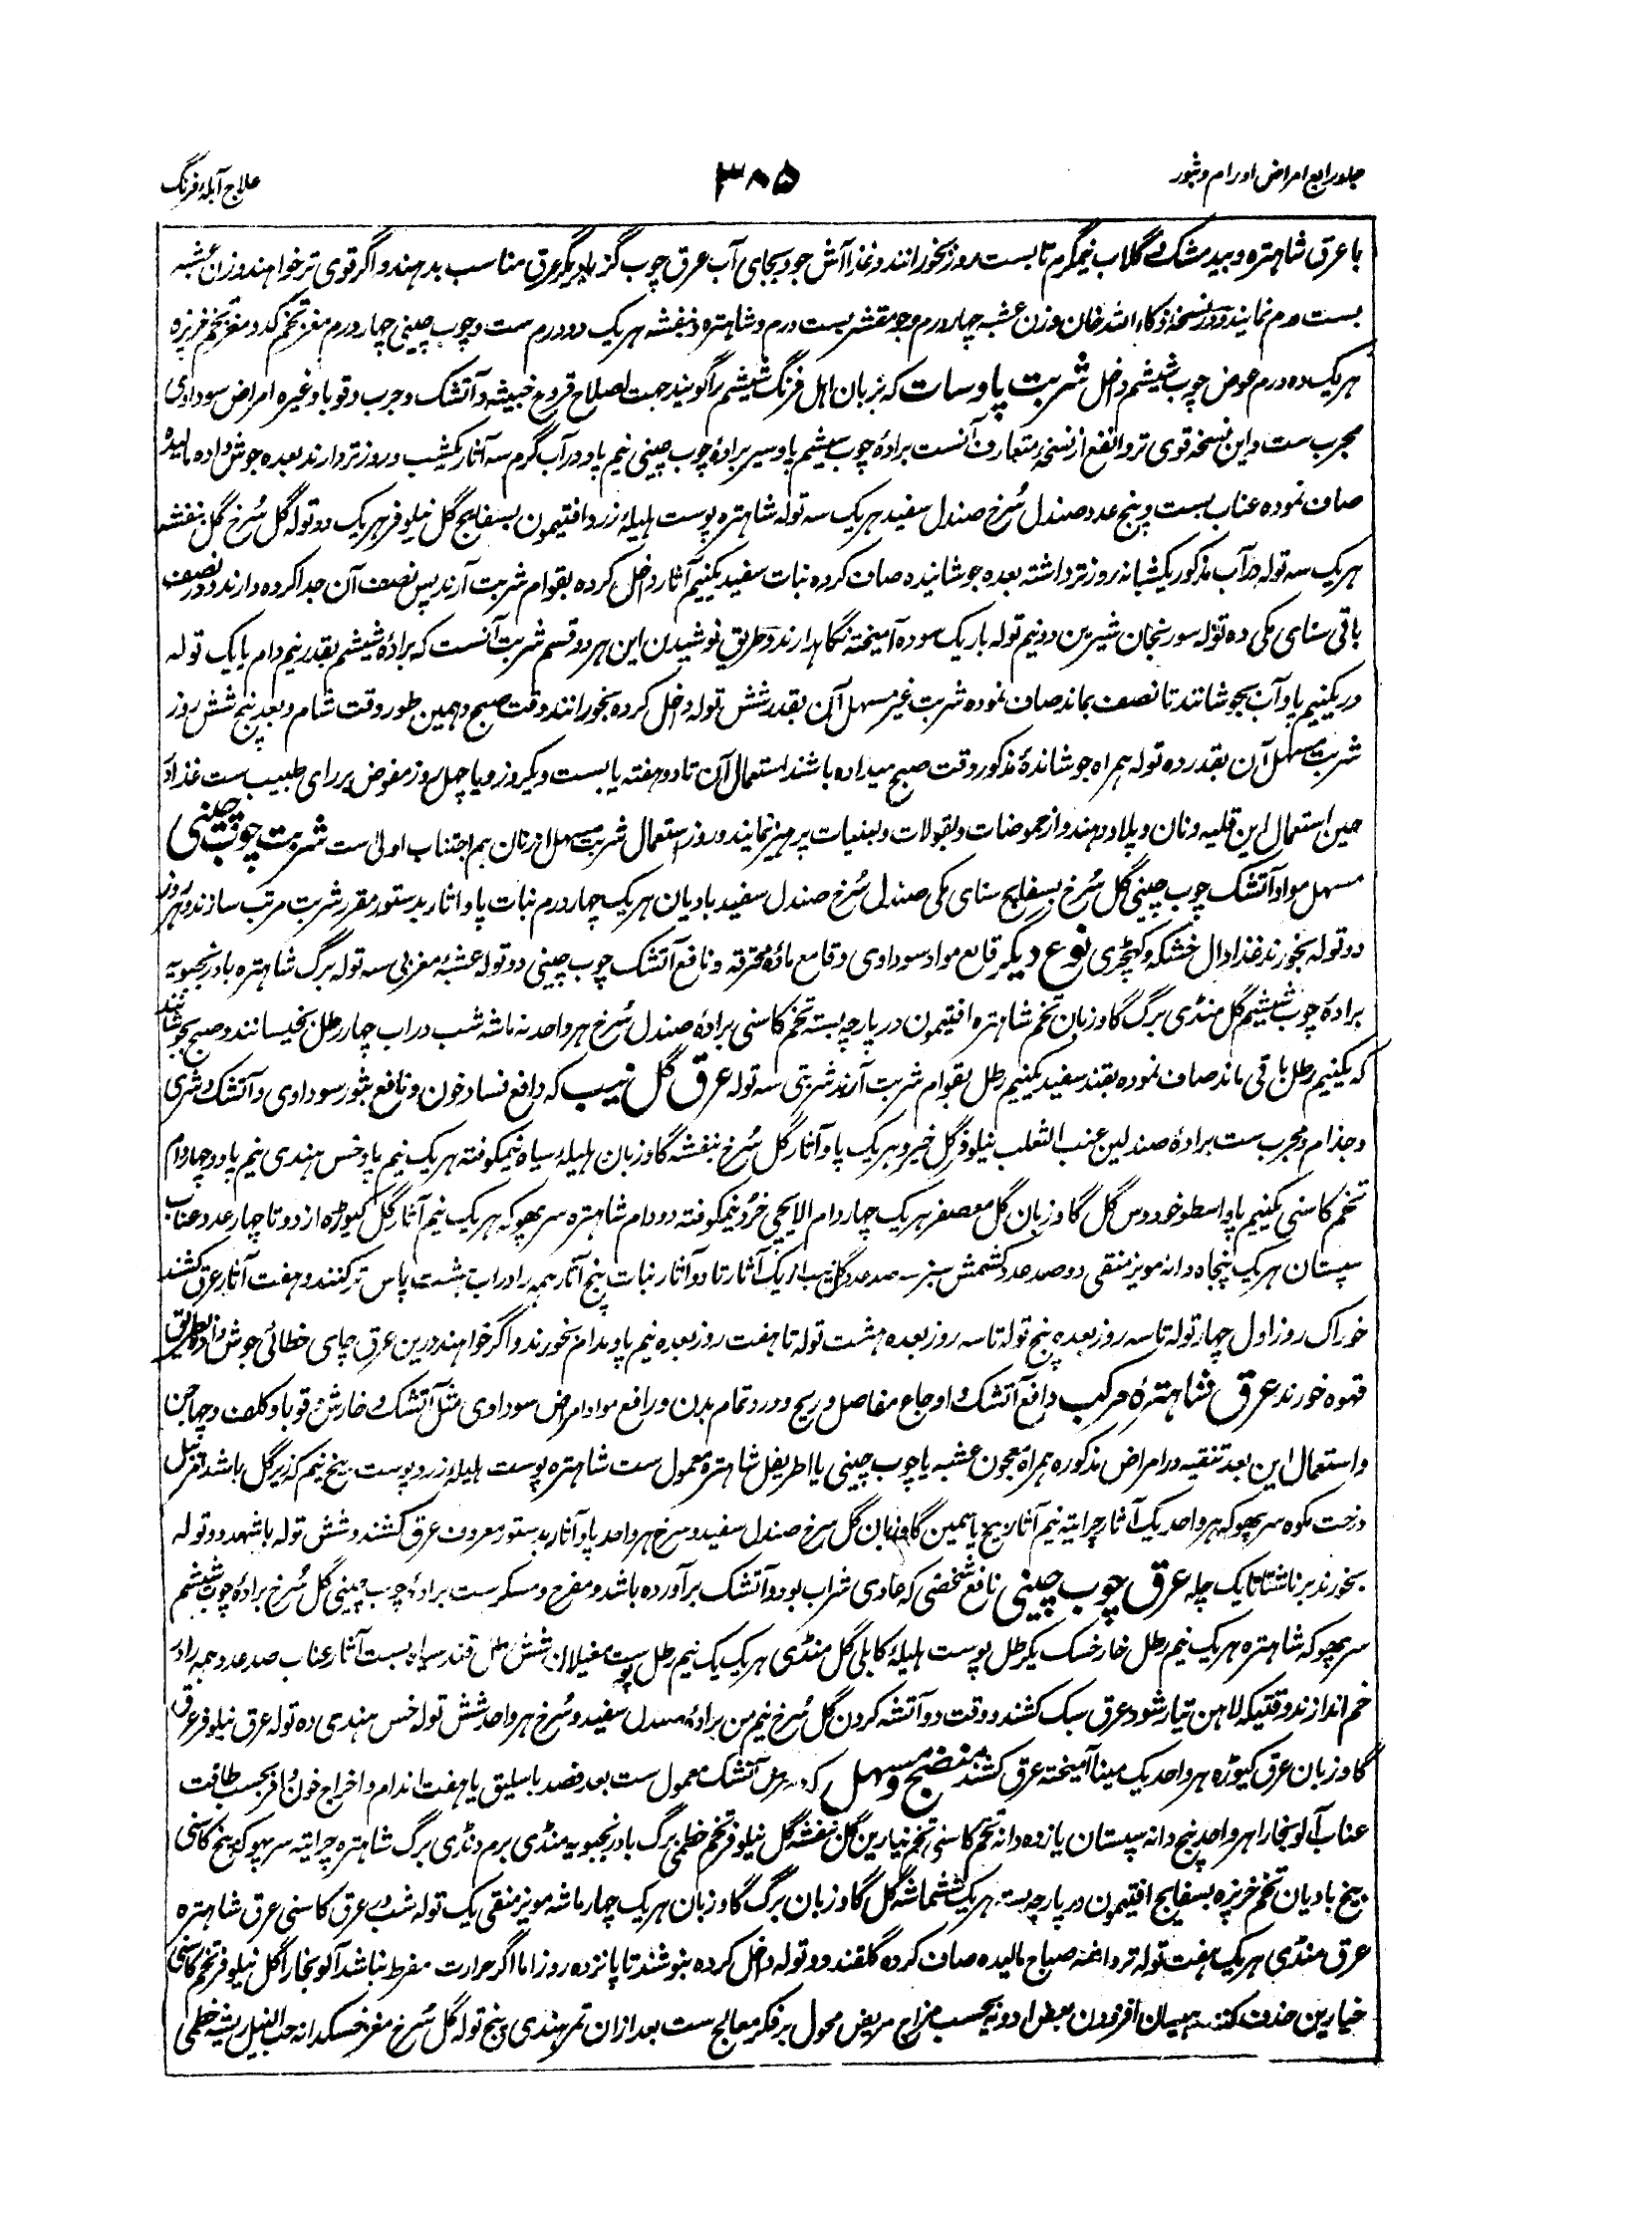 جلد رابع امراض اورام و بثور
۳۸۵
علاج آبلهٔ فرنگ
با عرق شاهتره و بید مشک و گلاب نیمگرم تا بست روز بخورانند و غذا آش جو و بجای آب عرق چوب گز یا دیگر عرق مناسب بدهند و اگر قوی تر خواهند وزن عشبه
بست درم نمایند و در نسخهٔ ذکاء الله خان وزن عشبه چهار درم و جو مقشر بست درم و شاهتره و بنفشه هر یک دو درم ست و چوب چینی چهار درم مغز تخم کدو مغز تخم خرپزه
هر یک ده درم عوض چوب شیشم داخل شربت پاوسات که بزبان اهل فرنگ شیشم را گویند جهت اصلاح قروح خبیثه و آتشک و جرب و قوبا و غیره امراض سوداوی
مجرب ست و این نسخه قوی تر و انفع از نسخهٔ متعارف آنست برادهٔ چوب شیشم پاو سیر برادهٔ چوب چینی نیم پاو در آب گرم سه آثار یکشب و روز تر دارند بعده جوش داده مالیده
صاف نموده عناب بست و پنج عدد صندل سُرخ صندل سفید هر یک سه توله شاهتره پوست هلیلهٔ زرد افتیمون بسفایج گل نیلوفر هر یک دو توله گل سُرخ گل بنفشه
هر یک سه توله در آب مذکور یکشبانه روز تر داشته بعده جوشانیده صاف کرده نبات سفید یکنیم آثار داخل کرده بقوام شربت آرند پس نصف آن جدا کرده دارند و در نصف
باقی سنای مکی ده توله سورنجان شیرین دو نیم توله باریک سوده آمیخته نگاهدارند و طریق نوشیدن این هر دو قسم شربت آنست که برادهٔ شیشم بقدر نیم دام یا یک توله
در یکنیم پاو آب بجوشانند تا نصف بماند صاف نموده شربت غیر مسهل آن بقدر شش توله داخل کرده بخورانند وقت صبح و همین طور وقت شام و بعد پنج شش روز
شربت مسهل آن بقدر ده توله همراه جوشاندهٔ مذکور وقت صبح میداده باشند استعمال آن تا دو هفته یا بست و یکروز و یا چهل روز مفوض بر رای طبیب ست غذا در
حین استعمال این قلیه و نان و پلاو دهند و از حموضات و بقولات و لبنیات پرهیز نمایند و روز استعمال شربت مسهل از نان هم اجتناب اولی ست شربت چوب چینی
مسهل مواد آتشک چوب چینی گل سُرخ بسفایج سنای مکی صندل سُرخ صندل سفید بادیان هر یک چهار درم نبات پاو آثار بدستور مقرر شربت مرتب سازند و هر روز
دو توله بخورند غذا دال خشکه و کهچڑی نوع دیگر قامع مواد سوداوی و قامع مادهٔ محترقه و نافع آتشک چوب چینی دو توله عشبهٔ مغربی سه توله برگ شاهتره بادرنجبویه
برادهٔ چوب شیشم گل منڈی برگ گاوزبان تخم شاهتره افتیمون در پارچه بسته تخم کاسنی برادهٔ صندل سُرخ هر واحد نه ماشه شب در آب چهار رطل بخیسانند و صبح بجوشانند
که یکنیم رطل باقی ماند صاف نموده بقند سفید یکنیم رطل بقوام شربت آرند شربتی سه توله عرق گل نیب که دافع فساد خون و نافع بثور سوداوی و آتشک و شری
و جذام و مجرب ست برادهٔ صندلین عنب الثعلب نیلوفر گل خیرو هر یک پاو آثار گل سُرخ بنفشه گاوزبان هلیلهٔ سیاه نیمکوفته هر یک نیم پاو خس هندی نیم پاو و چهار دام
تخم کاسنی یکنیم پاو اسطوخودوس گل گاوزبان گل معصفر هر یک چهار دام الایچی خُرد نیمکوفته دو دام شاهتره سرپهوکه هر یک نیم آثار گل کیوڑه از دو تا چهار عدد عناب
سپستان هر یک پنجاه دانه مویز منقی دو صد عدد کشمش سبز سه صد عدد گل نیب از یک آثار تا دو آثار نبات پنج آثار همه را در آب هشت پاس تر کنند و هفت آثار عرق کشند
خوراک روز اول چهار توله تا سه روز بعده پنج توله تا سه روز بعده هشت توله تا هفت روز بعده نیم پاو مدام بخورند و اگر خواهند درین عرق چای خطائی جوش داده بطریق
قهوه خورند عرق شاهترهٔ مرکب دافع آتشک و اوجاع مفاصل و ریح و درد تمام بدن و رافع مواد امراض سوداوی مثل آتشک و خارش و قوبا و کلف و جهاجن
و استعمال این بعد تنقیه در امراض مذکوره همراه معجون عشبه یا چوب چینی یا اطریفل شاهتره معمول ست شاهتره پوست هلیلهٔ زرد پوست بیخ نیم که زیر گل باشد
درخت مکوه سرپهوکه هر واحد یک آثار چرایته نیم آثار بیخ یاسمین گاوزبان گل سرخ صندل سفید و سرخ هر واحد پاو آثار بدستور معروف عرق کشند و شش توله با شهد دو توله
بخورند بر ناشتا تا یک چله عرق چوب چینی نافع شخصی که عادی شراب بود و آتشک برآورده باشد و مفرح و مسکر ست برادهٔ چوب چینی گل سُرخ برادهٔ چوب شیشم
سرپهوکه شاهتره هر یک نیم رطل خارخسک یکرطل پوست هلیلهٔ کابلی گل منڈی هر یک یک نیم رطل پوست مغیلان شش رطل قند سیاه بست آثار عناب صد عدد همه را در
خم اندازند وقتیکه لاهن تیار شود عرق سبک کشند و وقت دو آتشه کردن گل سُرخ نیم من برادهٔ صندل سفید و سُرخ هر واحد شش توله خس هندی ده توله عرق نیلوفر عرق
گاوزبان عرق کیوڑه هر واحد یک مینا آمیخته عرق کشند منضج و مسهل که در مرض آتشک معمول ست بعد فصد باسلیق یا هفت اندام و اخراج خون وافر بحسب طاقت
عناب آلو بخارا هر واحد پنج دانه سپستان یازده دانه تخم کاسنی تخم خیارین گل بنفشه گل نیلوفر تخم خطمی برگ بادرنجبویه منڈی برم ڈنڈی برگ شاهتره چرایته سرپهوکه بیخ کاسنی
بیخ بادیان تخم خرپزه بسفایج افتیمون در پارچه بسته هر یک ششماشه گل گاوزبان برگ گاوزبان هر یک چهار ماشه مویز منقی یک توله شب در عرق کاسنی عرق شاهتره
عرق منڈی هر یک هفت توله تر داشته صباح مالیده صاف کرده گلقند دو توله داخل کرده بنوشند تا پانزده روز اما اگر حرارت مفرط نباشد آلو بخارا گل نیلوفر تخم کاسنی
خیارین حذف کنند همچنان افزودن بعض ادویه بحسب مزاج مریض محول بر فکر معالج ست بعد ازان تمر هندی پنج توله گل سُرخ مغز خسکدانه حب النیل ریشهٔ خطمی